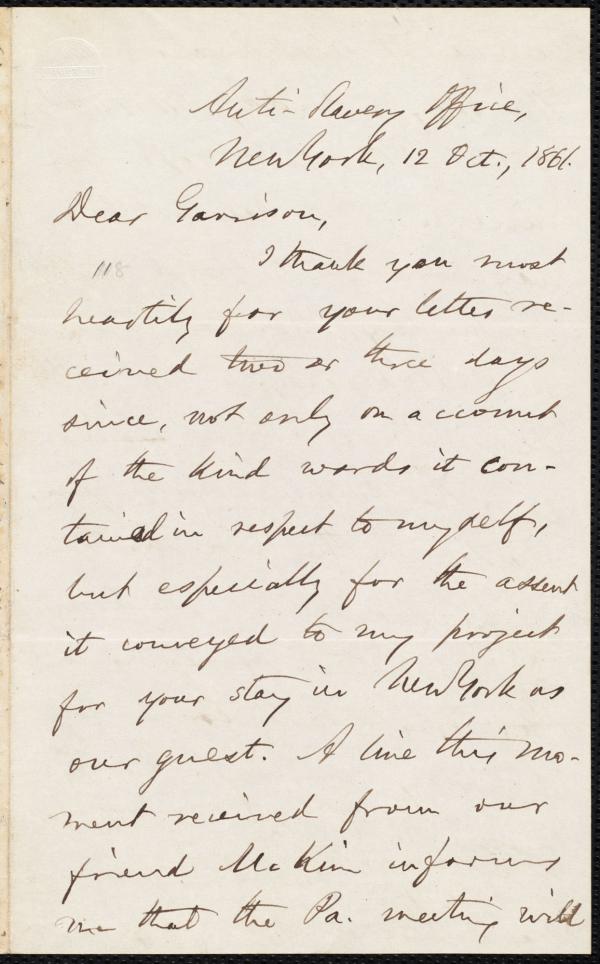 Anti-Slavery Office,
New York, 12 Oct., 1861.
Dear Garrison,
118
I thank you most
heartily for your letter re-
ceived two or three days
since, not only on account
of the kind words it con-
tained in respect to myself,
but especially for the assent
it conveyed to my project
for your stay in New York as
our guest. A line this mo-
ment received from our
friend McKim informs
me that the Pa. meeting will